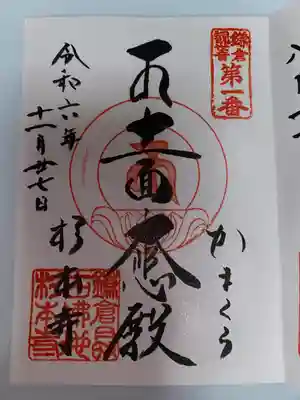 鎌倉
観音
第一番
かまくら
十一面大悲殿
令和六年
十一月廿七日
杉本寺
鎌倉最
古佛地
杉本寺